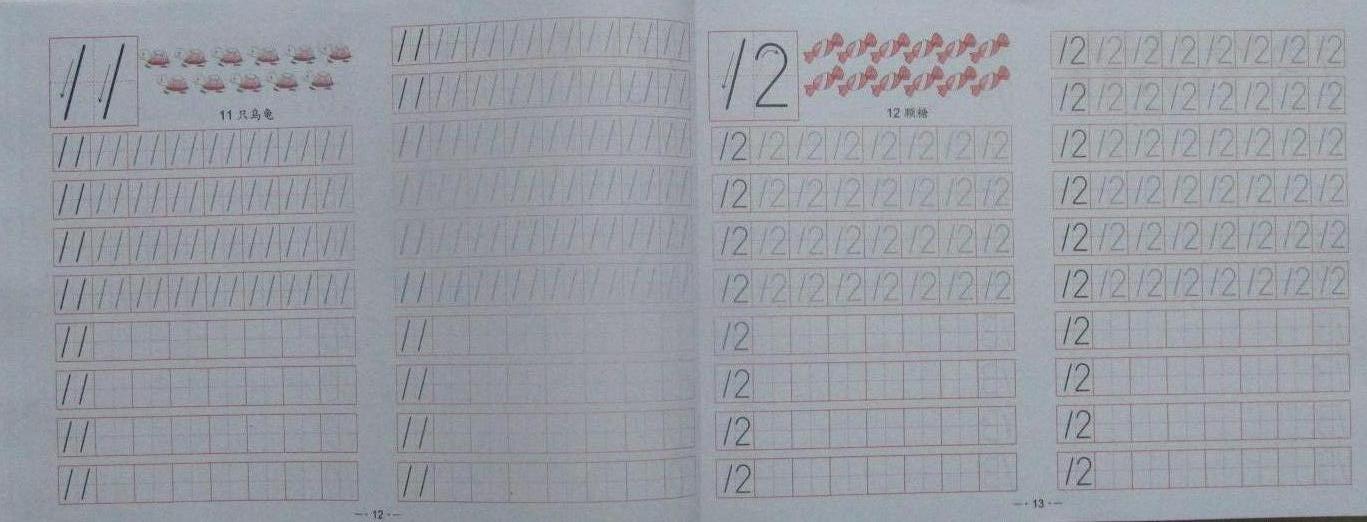 11
11 只乌龟
11 11 11 11 11 11 11 11
11 11 11 11 11 11 11 11
11 11 11 11 11 11 11 11
11 11 11 11 11 11 11 11
11
11
11
11
11 11 11 11 11 11 11 11
11 11 11 11 11 11 11 11
11 11 11 11 11 11 11 11
11 11 11 11 11 11 11 11
11 11 11 11 11 11 11 11
11 11 11 11 11 11 11 11
11
11
11
11
— · 12 · —
12
12 颗糖
12 12 12 12 12 12 12 12
12 12 12 12 12 12 12 12
12 12 12 12 12 12 12 12
12 12 12 12 12 12 12 12
12
12
12
12
12 12 12 12 12 12 12 12
12 12 12 12 12 12 12 12
12 12 12 12 12 12 12 12
12 12 12 12 12 12 12 12
12 12 12 12 12 12 12 12
12 12 12 12 12 12 12 12
12
12
12
12
— · 13 · —